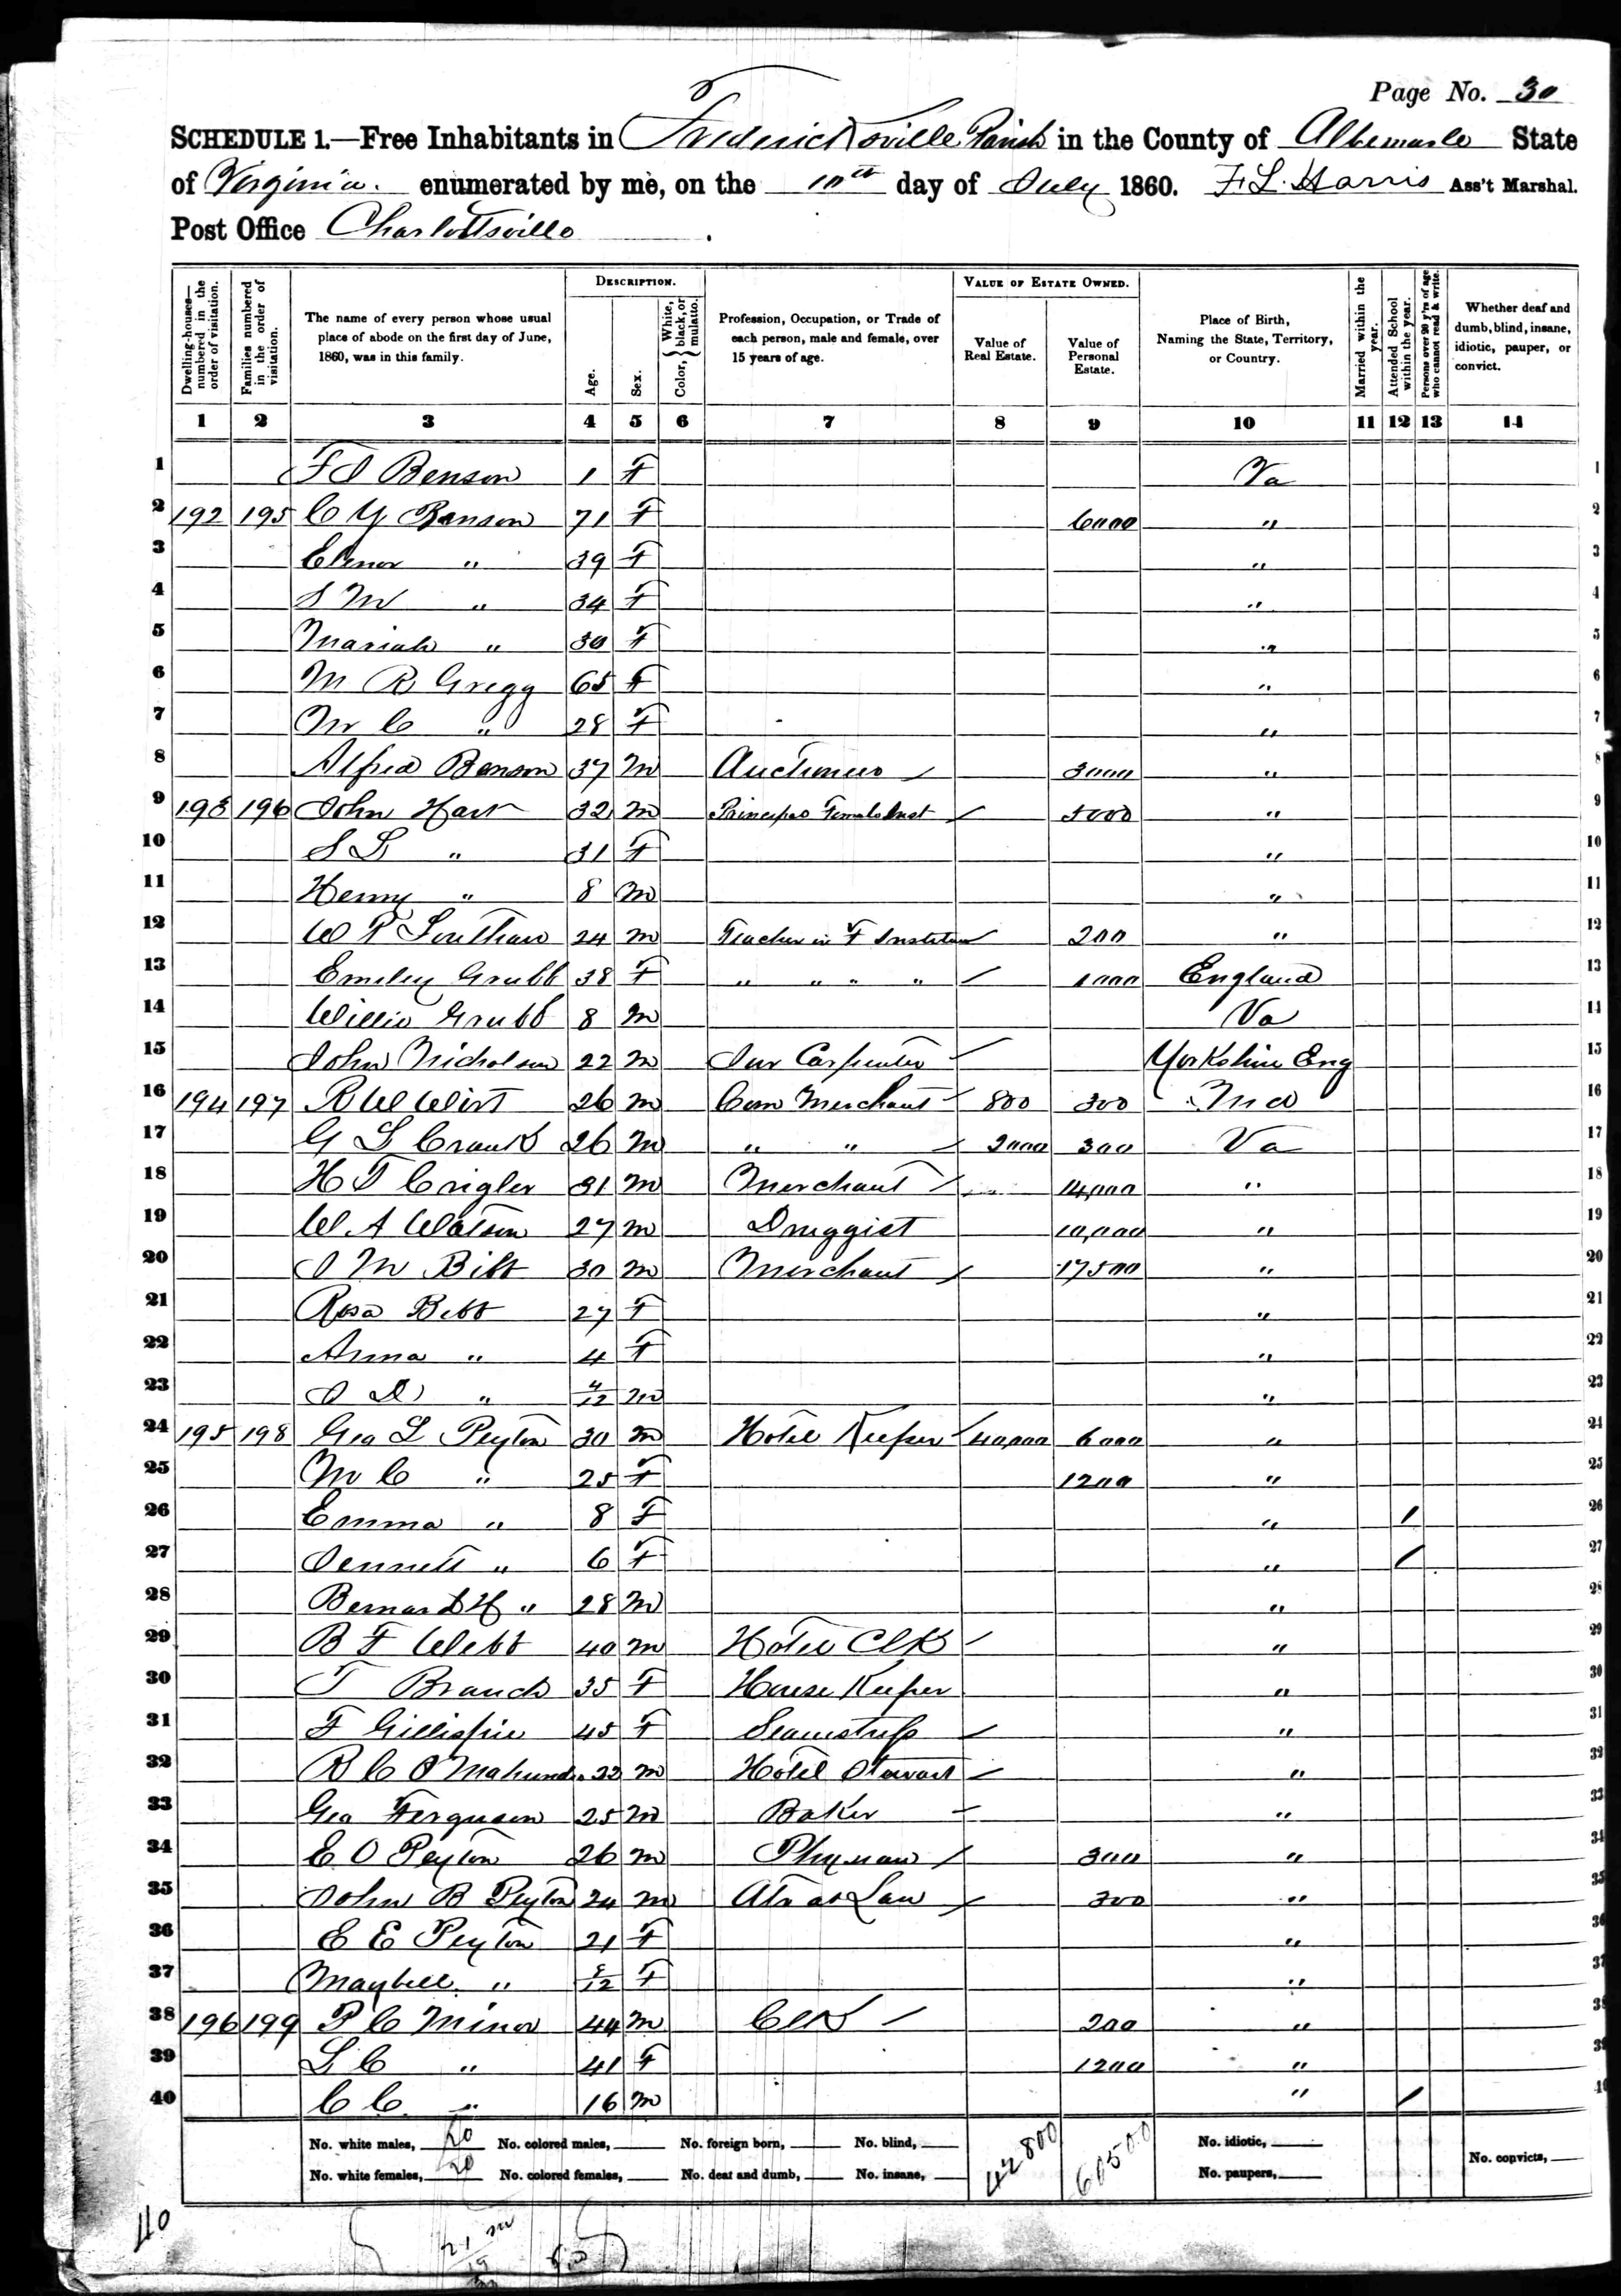 Page No. 30
SCHEDULE 1.—Free Inhabitants in Fredericksville Parish in the County of Albemarle State
of Virginia. enumerated by me, on the 10th day of July 1860. F. L. Harris Ass't Marshal.
Post Office Charlottsville
Dwelling-houses—numbered in the order of visitation.
Families numbered in the order of visitation.
The name of every person whose usual place of abode on the first day of June, 1860, was in this family.
DESCRIPTION.
Age.
Sex.
Color, White, black, or mulatto.
Profession, Occupation, or Trade of each person, male and female, over 15 years of age.
VALUE OF ESTATE OWNED.
Value of Real Estate.
Value of Personal Estate.
Place of Birth, Naming the State, Territory, or Country.
Married within the year.
Attended School within the year.
Persons over 20 y'rs of age who cannot read & write.
Whether deaf and dumb, blind, insane, idiotic, pauper, or convict.
1 2 3 4 5 6 7 8 9 10 11 12 13 14
1 Benson 1 F Va 1
2 192 195 C Y Benson 71 F 6000 " 2
3 Elenor " 39 F " 3
4 S M " 34 F " 4
5 Mariah " 30 F " 5
6 M R Gregg 65 F " 6
7 M C " 28 F " 7
8 Alfred Benson 37 M 3000 " 8
9 193 196 John Hart 32 M Principal Female Inst 5000 " 9
10 S L " 31 F " 10
11 Henry " 8 M " 11
12 W P 24 M Teacher in F Institute 200 " 12
13 Emiley Grubb 38 F " " " " 1000 England 13
14 Willie Grubb 8 M Va 14
15 John Nicholson 22 M Jur Carpenter Yorkshire Eng 15
16 194 197 R W Wirt 26 M Com Merchant 800 300 Md 16
17 G L Crank 26 M " " 2000 300 Va 17
18 H T Crigler 31 M Merchant 14,000 " 18
19 W A Watson 27 M Druggist 10,000 " 19
20 J M Bibb 30 M Merchant 17500 " 20
21 Rosa Bibb 27 F " 21
22 Anna " 4 F " 22
23 J D " 4/12 M " 23
24 195 198 Geo L Peyton 30 M Hotel Keeper 40,000 6000 " 24
25 M C " 25 F 1200 " 25
26 Emma " 8 F " / 26
27 Jennett " 6 F " / 27
28 Bernard H " 28 M " 28
29 B F Webb 40 M Hotel Clk " 29
30 T Branch 35 F House Keeper " 30
31 F Gillispie 45 F Seamstress " 31
32 R C 22 M Hotel Stewart " 32
33 Geo Ferguson 25 M Baker " 33
34 E O Peyton 26 M Physician 300 " 34
35 John B Peyton 24 M Atr at Law 300 " 35
36 E E Peyton 21 F " 36
37 Maybell " 5/12 F " 37
38 196 199 P C Minor 44 M Clk 200 " 38
39 L C " 41 F 1200 " 39
40 C C " 16 M " / 40
No. white males, 20 No. colored males, No. foreign born, No. blind, 42800 61500 No. idiotic,
No. white females, 20 No. colored females, No. deaf and dumb, No. insane, No. paupers, No. convicts,
40
21 m
19